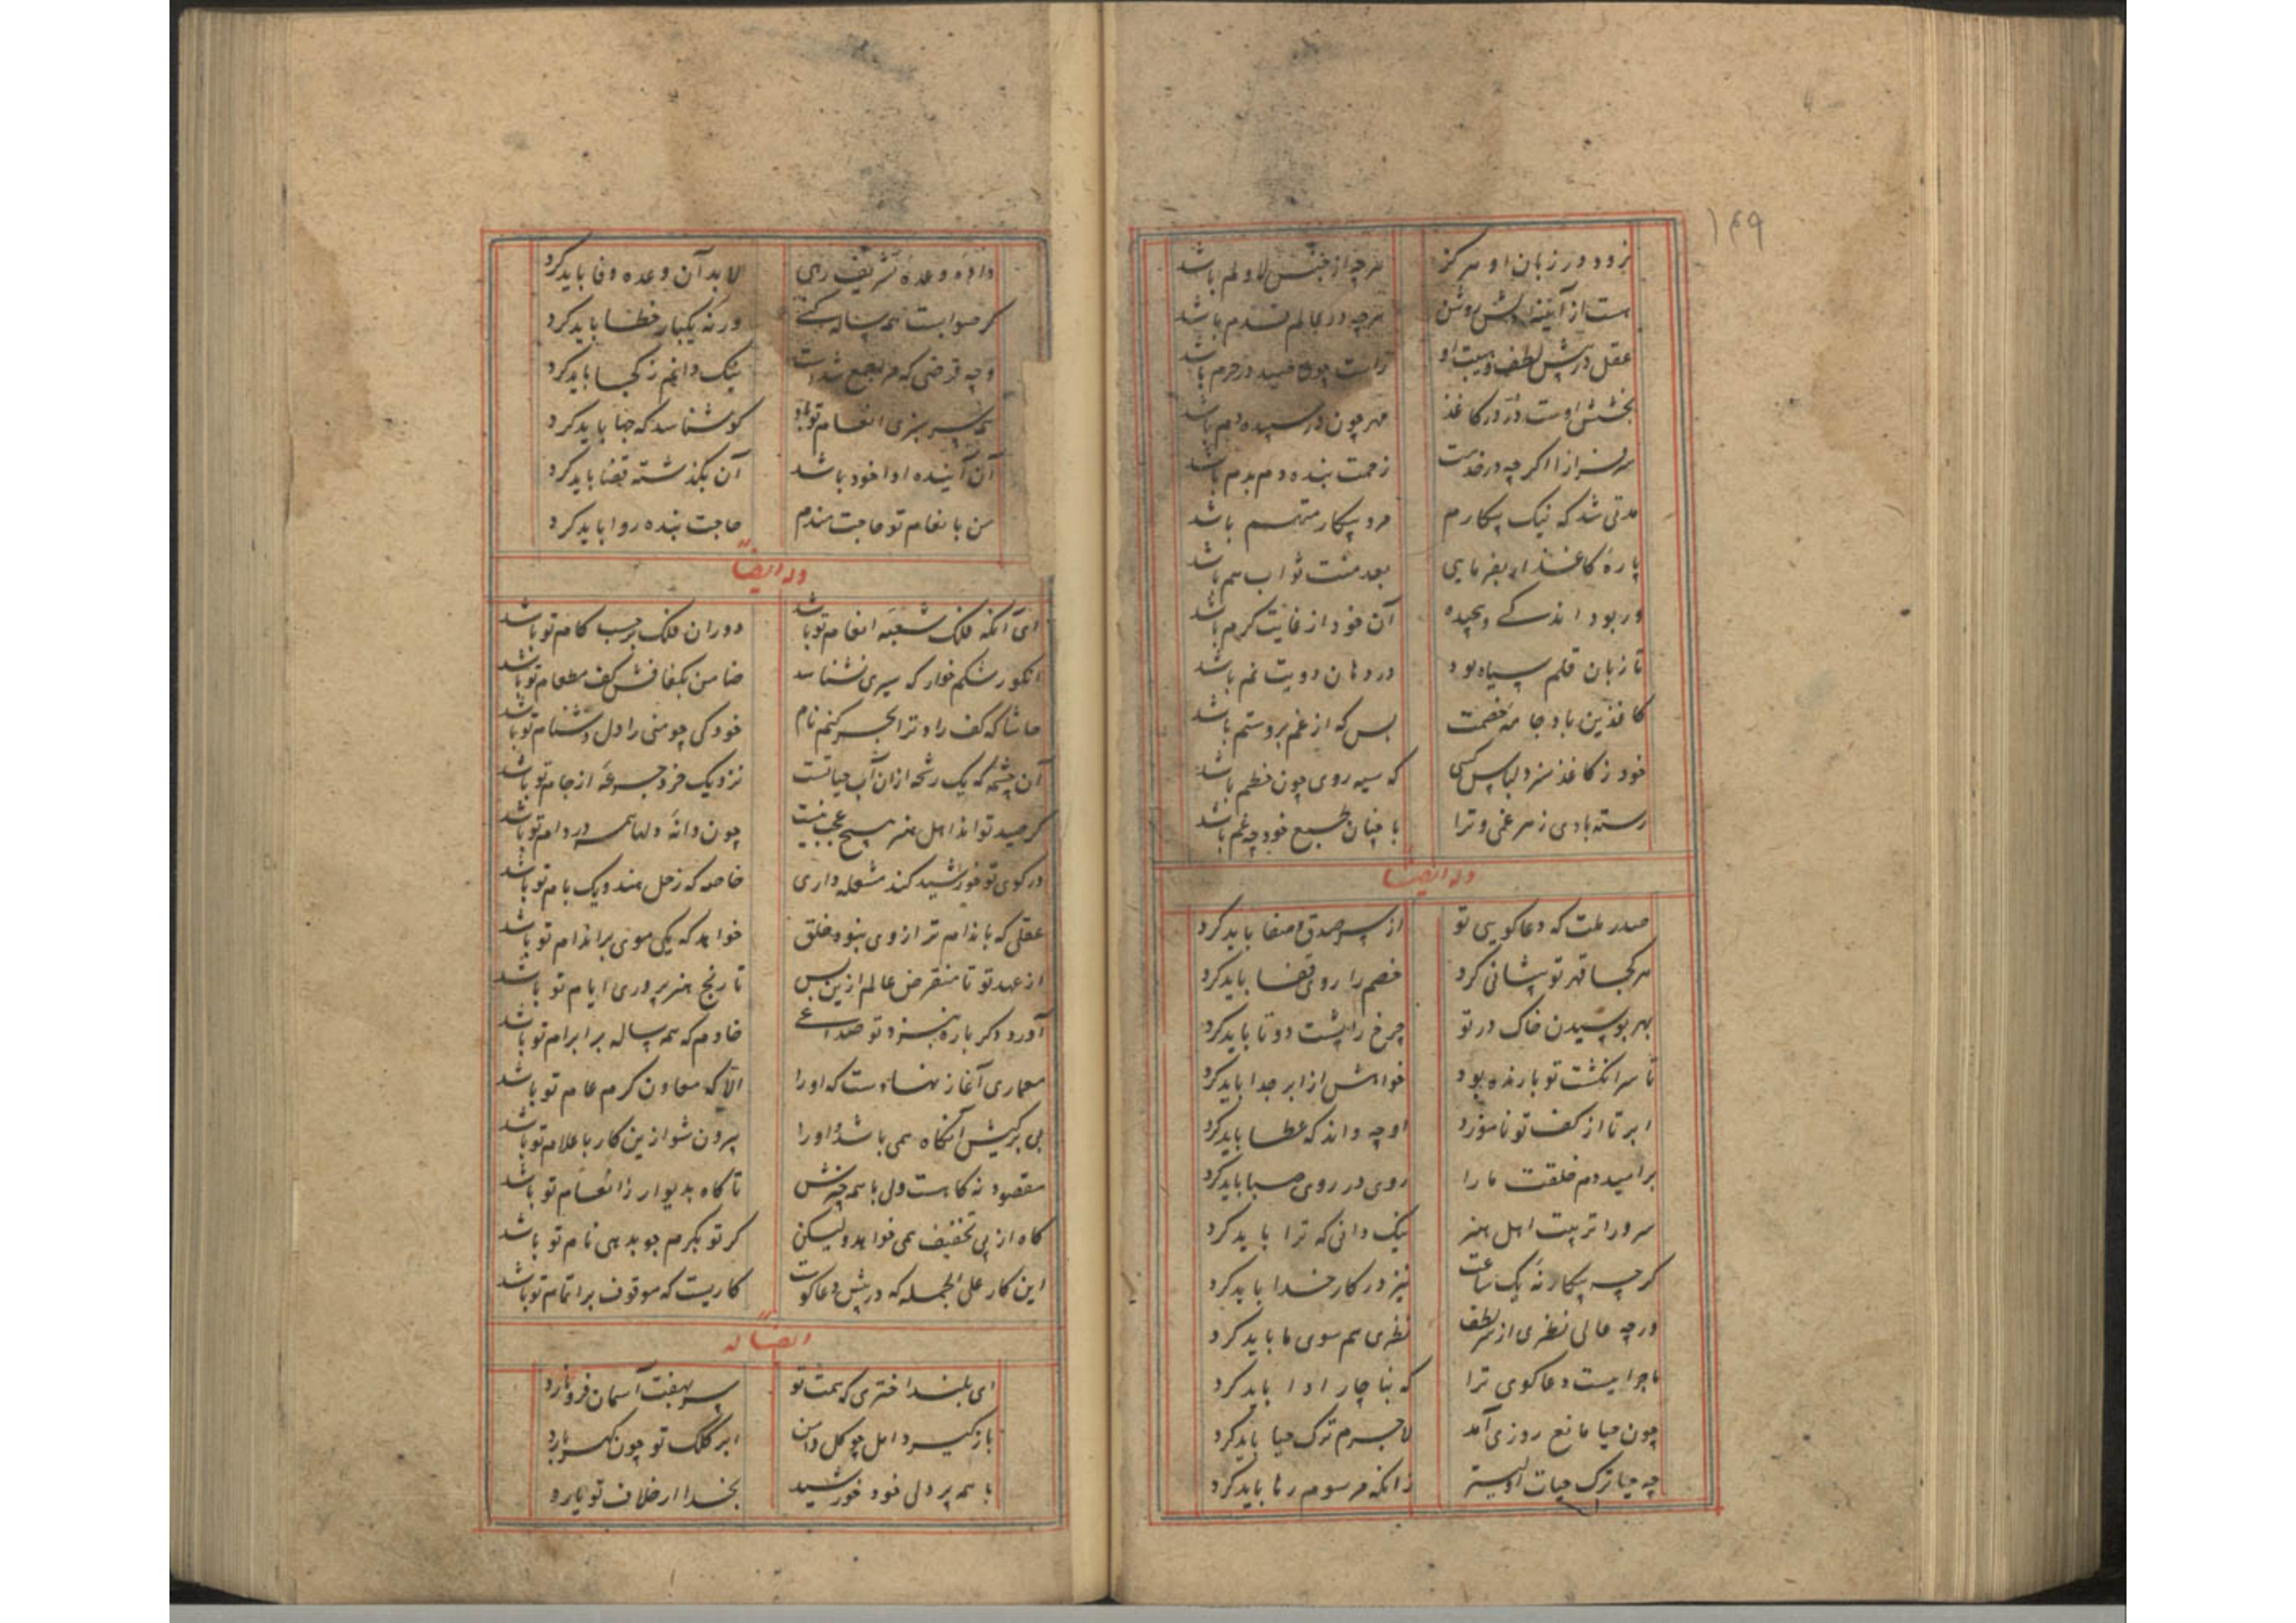 ۱۴۹
نرود در زبان او هرگز هرچه از جنس لا و لم باشد
هست از آیینه دلش روشن هرچه در عالم قدم باشد
عقل در پیش لطف و هیبت او راست چون صید در حرم باشد
بخشش اوست زر در کاغذ مهر چون در سپیده دم باشد
سرفرازا اگرچه در خدمت زحمت بنده دم بدم باشد
مدتی شد که نیک بیکارم مرد بیکار متهم باشد
پاره کاغذ ار بفرمایی بعد منت ثواب هم باشد
ور بود اندکی و پیچیده آن خود از غایت کرم باشد
تا زبان قلم سیاه بود در دهان دویت نم باشد
کاغذین باد جامه خصمت بس که از غم برو ستم باشد
خود ز کاغذ سزد لباس کسی که سیه روی چون خطم باشد
رسته بادی ز هر غمی و ترا با چنان طبع خود چه غم باشد
وله ایضا
صدر ملت که دعاگویی تو از سر صدق و صفا باید کرد
هر کجا قهر تو پیشانی کرد خصم را روی قضا باید کرد
بهر بوسیدن خاک در تو چرخ را پشت دوتا باید کرد
تا سر انگشت تو بارنده بود خواهش از ابر جدا باید کرد
ابر تا از کف تو ناموزد او چه داند که عطا باید کرد
بر امید دم خلقت ما را روی در روی صبا باید کرد
سرورا تربیت اهل هنر نیک دانی که ترا باید کرد
گرچه بیکار نه یک ساعت نیز در کار خدا باید کرد
ورچه عالی نظری از سر لطف نظری هم سوی ما باید کرد
ماجراییست دعاگوی ترا که بناچار ادا باید کرد
چون حیا مانع روزی آمد لاجرم ترک حیا باید کرد
چه حیا ترک حیات اولیتر زانکه مرسوم رها باید کرد
داده وعده تشریف رهی لابد آن وعده وفا باید کرد
گر صوابست همه ساله کنی ورنه یکبار خطا باید کرد
وجه قرضی که مرا جمع شدست نیک دانم ز کجا باید کرد
سرسبزی انعام تو باد کو شناسد که چها باید کرد
آن آینده ادا خود باشد آن بگذشته قضا باید کرد
من بانعام تو حاجت مندم حاجت بنده روا باید کرد
وله ایضا
ای آنکه فلک شعبه انعام تو باشد دوران فلک بر حسب کام تو باشد
انکور شکم خوار که سیری نشناسد ضامن بکفافش کف مطعام تو باشد
حاشا که کف راد ترا بحر کنم نام خود کی چو منی را دل دشنام تو باشد
آن چشمه که یک رشحه ازان آب حیاتست نزدیک خرد جرعه از جام تو باشد
گر صید تواند اهل هنر هیچ عجب نیست چون دانه دلها همه در دام تو باشد
در کوی تو خورشید کند مشعله داری خاصه که زحل هندویک بام تو باشد
عقلی که باندام تر از وی نبود خلق خواهد که یکی موی بر اندام تو باشد
از عهد تو تا منقرض عالم ازین پس تاریخ هنرپروری ایام تو باشد
آورد دگرباره بنزد تو صداعی خادم که همه ساله بر ابرام تو باشد
معماری آغاز نهادست که او را الا که معاون کرم عام تو باشد
بی برگیش آنگاه همی باشد و او را بیرون شو ازین کار باعلام تو باشد
مقصود نه کاهست ولی با همه چیزش تا کاه بدیوار ز انعام تو باشد
کاه از پی تخفیف همی خواهد ولیکن گر تو بکرم جو بدهی نام تو باشد
این کار علی الجمله که در پیش دعاگوست کاریست که موقوف بر اتمام تو باشد
ایضا له
ای بلند اختری که همت تو سر بهفت آسمان فرو نارد
باز گیرد امل چو گل دامن ابر کلک تو چون گهر بارد
با همه پردلی خود خورشید بخدا ار خلاف تو یارد